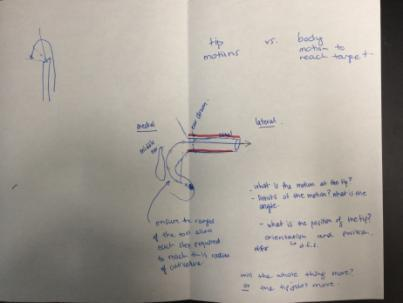 tip motions vs. body motion to reach target
medial
ear drum
canal
lateral.
middle ear
ensure the ranges
of the tool allow
each step required
to reach this radius
of curvature
- what is the motion at the tip?
- limits of the motion? what is the
angle.
- what is the position of the tip?
orientation and position,
d.o.f.s.
will the whole thing move?
or the tip move.